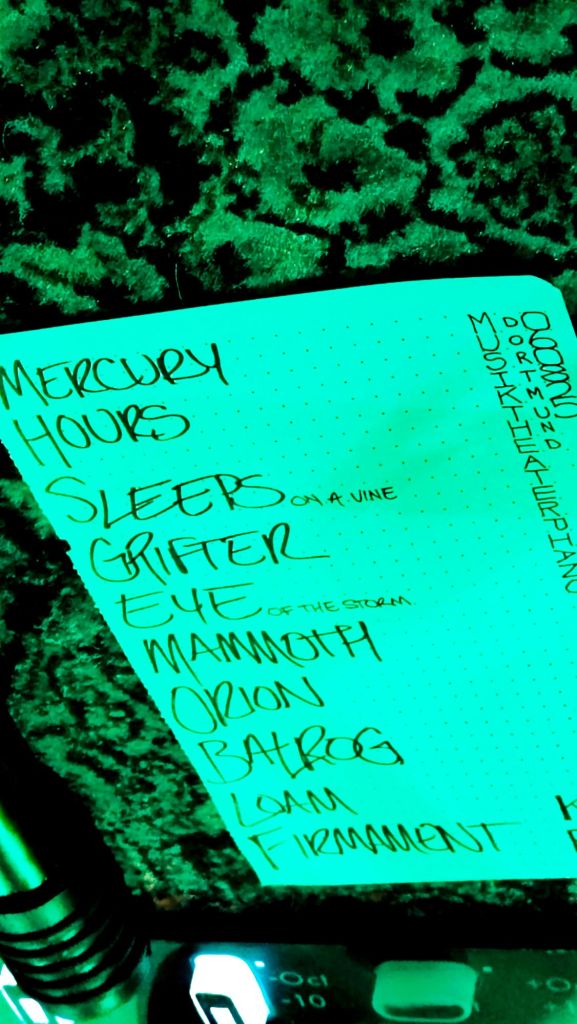 MERCURY
HOURS
SLEEPS ON A VINE
GRIFTER
EYE OF THE STORM
MAMMOTH
ORION
BALROG
LOAM
FIRMAMENT
DORTMUND
MUSIKTHEATERPIANO
-Oct
-10